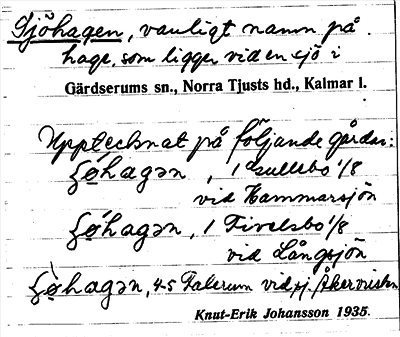 Sjöhagen, vanligt namn på
hage, som ligger vid en sjö i
Gärdserums sn., Norra Tjusts hd., Kalmar l.
Upptecknat på följande gårdar:
ʃø̀hagən, 1 /8
vid Hammarsjön
ʃø̀hagən, 1 Fivelsbo 1/8
vid Långsjön
ʃø̀hagən, 45 Falerum vid sj.
Knut-Erik Johansson 1935.